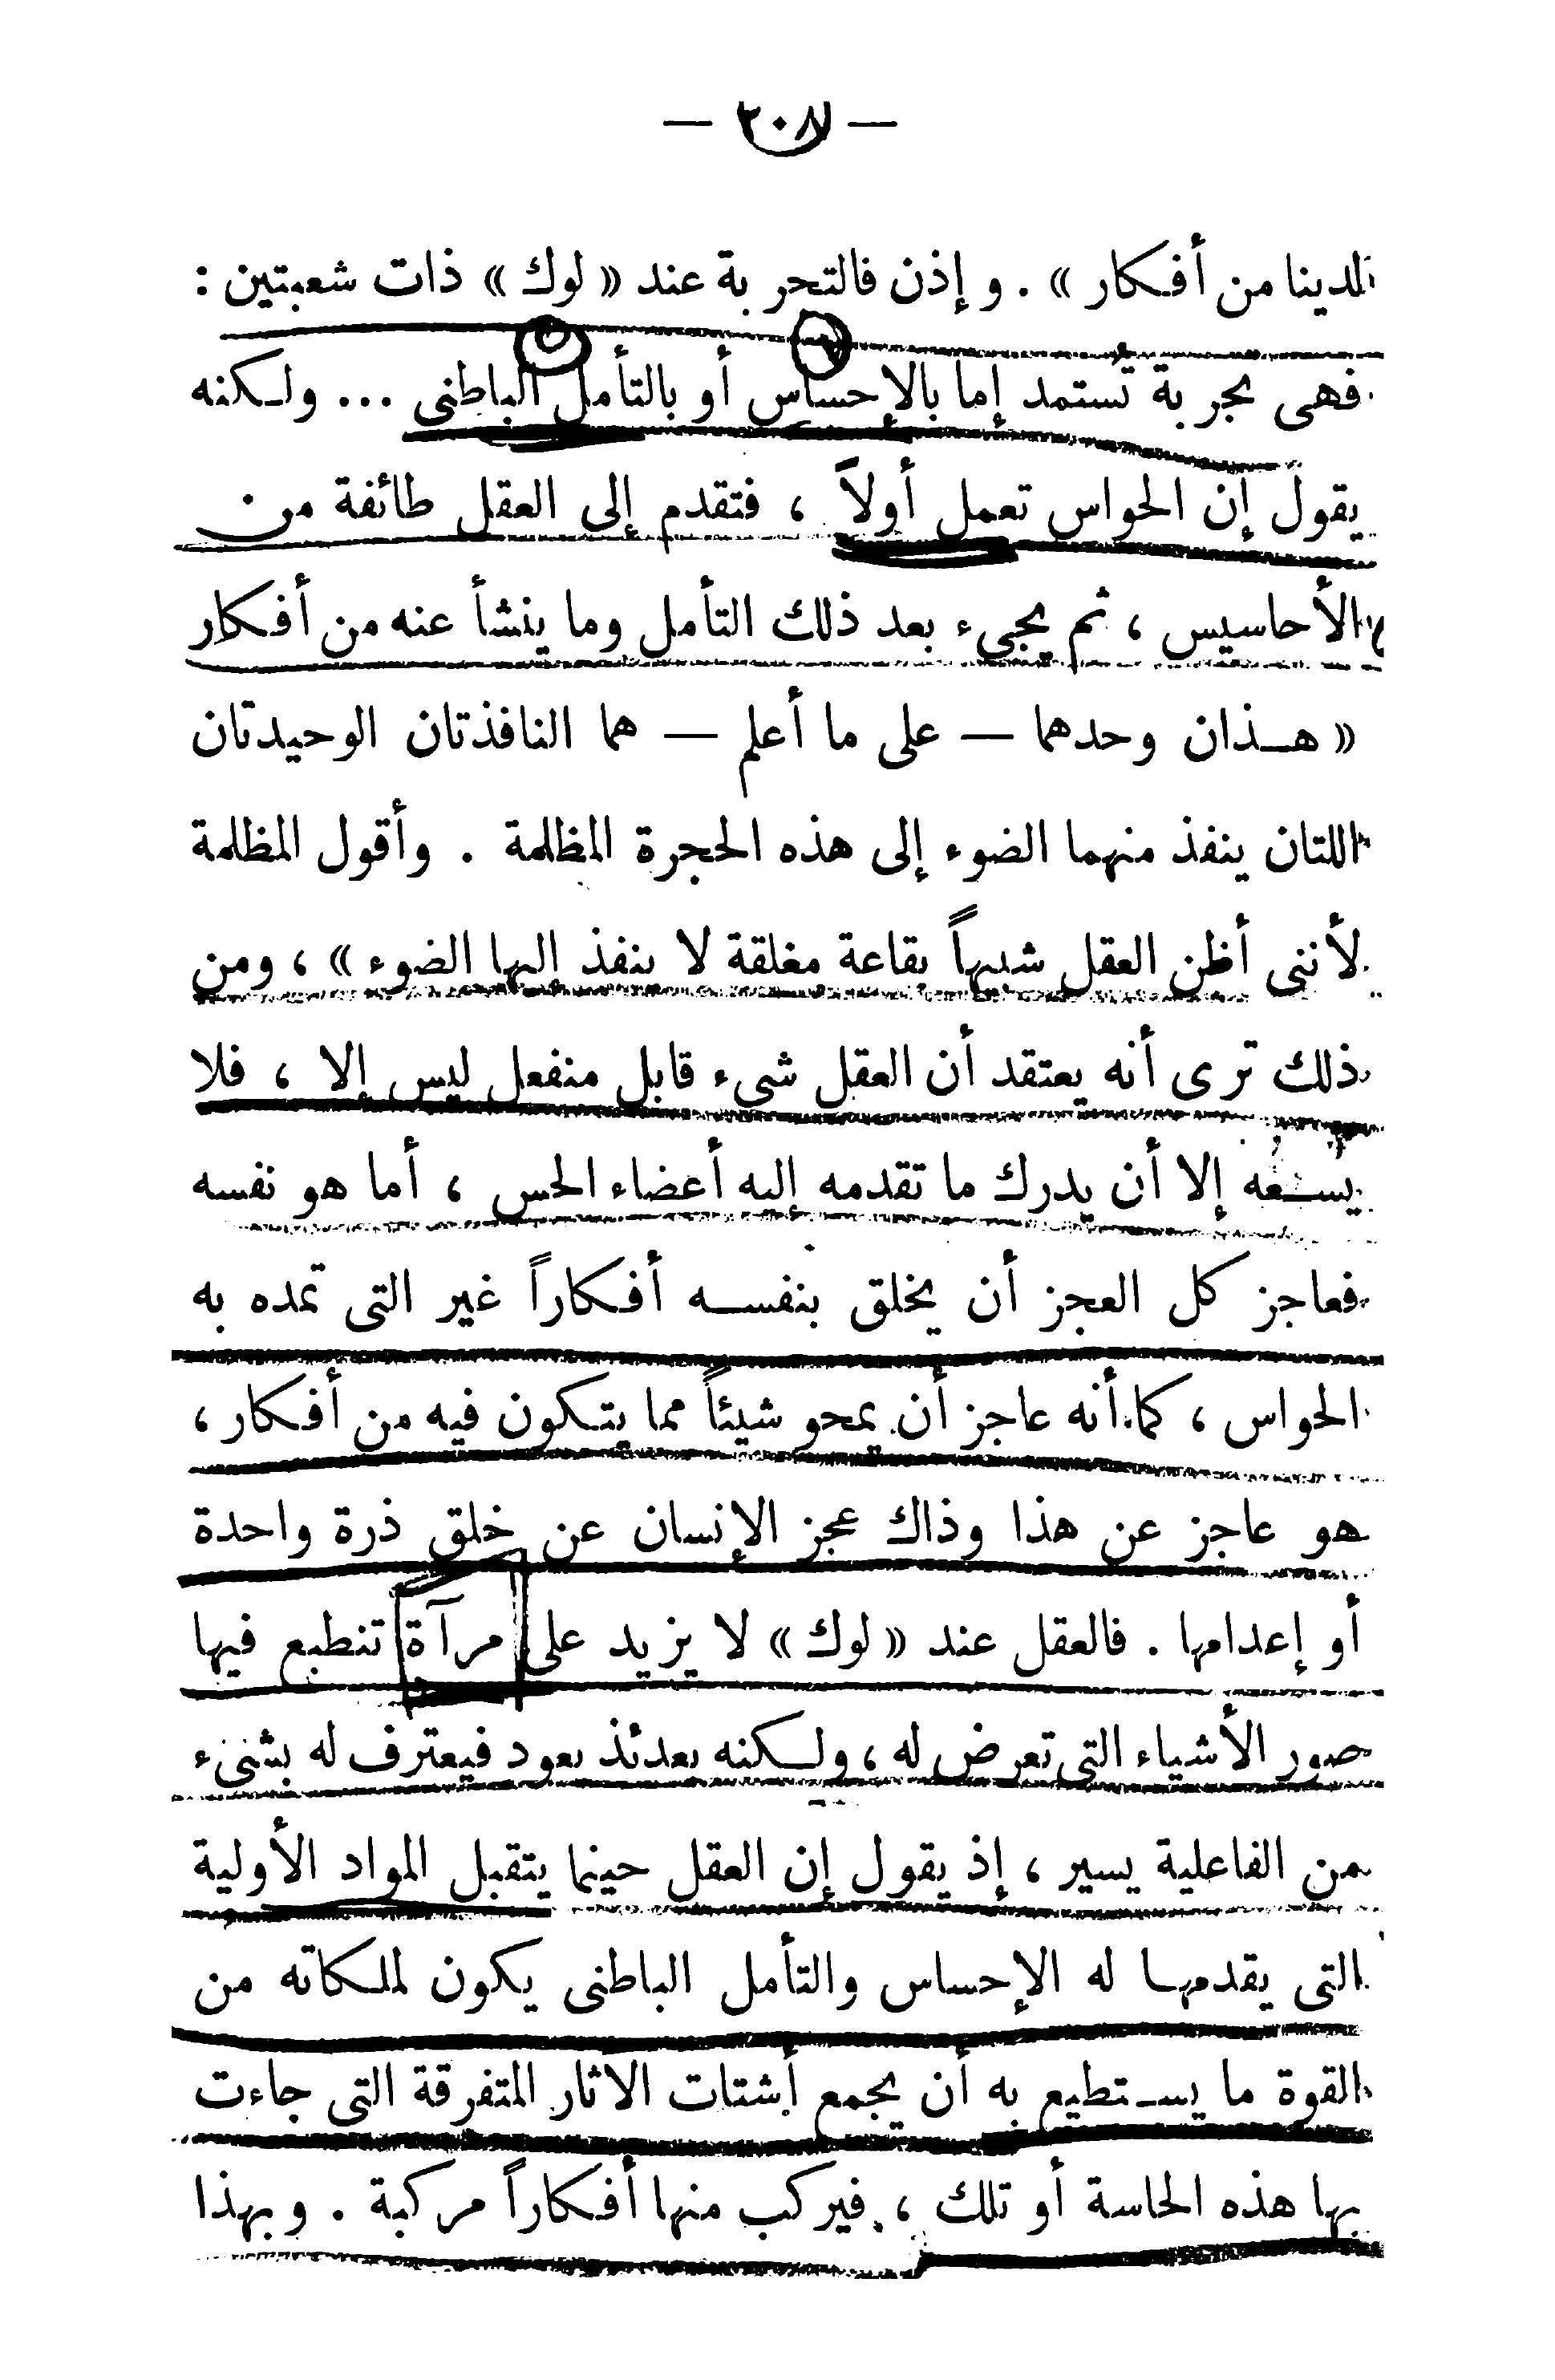 — ٢٠٨ —
لدينا من أفكار » . وإذن فالتجربة عند « لوك » ذات شعبتين :
فهى تجربة تُستمد إما بالإحساس أو بالتأمل الباطنى ... ولكنه
يقول إن الحواس تعمل أولاً ، فتقدم إلى العقل طائفة من
الأحاسيس ، ثم يجىء بعد ذلك التأمل وما ينشأ عنه من أفكار
« هذان وحدهما — على ما أعلم — هما النافذتان الوحيدتان
اللتان ينفذ منهما الضوء إلى هذه الحجرة المظلمة . وأقول المظلمة
لأننى أظن العقل شبيهاً بقاعة مغلقة لا ينفذ إليها الضوء » ، ومن
ذلك ترى أنه يعتقد أن العقل شىء قابل منفعل ليس إلا ، فلا
يسعُه إلا أن يدرك ما تقدمه إليه أعضاء الحس ، أما هو نفسه
فعاجز كل العجز أن يخلق بنفسه أفكاراً غير التى تمده به
الحواس ، كما أنه عاجز أن يمحو شيئاً مما يتكون فيه من أفكار ،
هو عاجز عن هذا وذاك عجز الإنسان عن خلق ذرة واحدة
أو إعدامها . فالعقل عند « لوك » لا يزيد على مرآة تنطبع فيها
صور الأشياء التى تعرض له ، ولكنه بعدئذ يعود فيعترف له بشىء
من الفاعلية يسير ، إذ يقول إن العقل حينما يتقبل المواد الأولية
التى يقدمها له الإحساس والتأمل الباطنى يكون لملكاته من
القوة ما يستطيع به أن يجمع أشتات الاثار المتفرقة التى جاءت
بها هذه الحاسة أو تلك ، فيركب منها أفكاراً مركبة . وبهذا